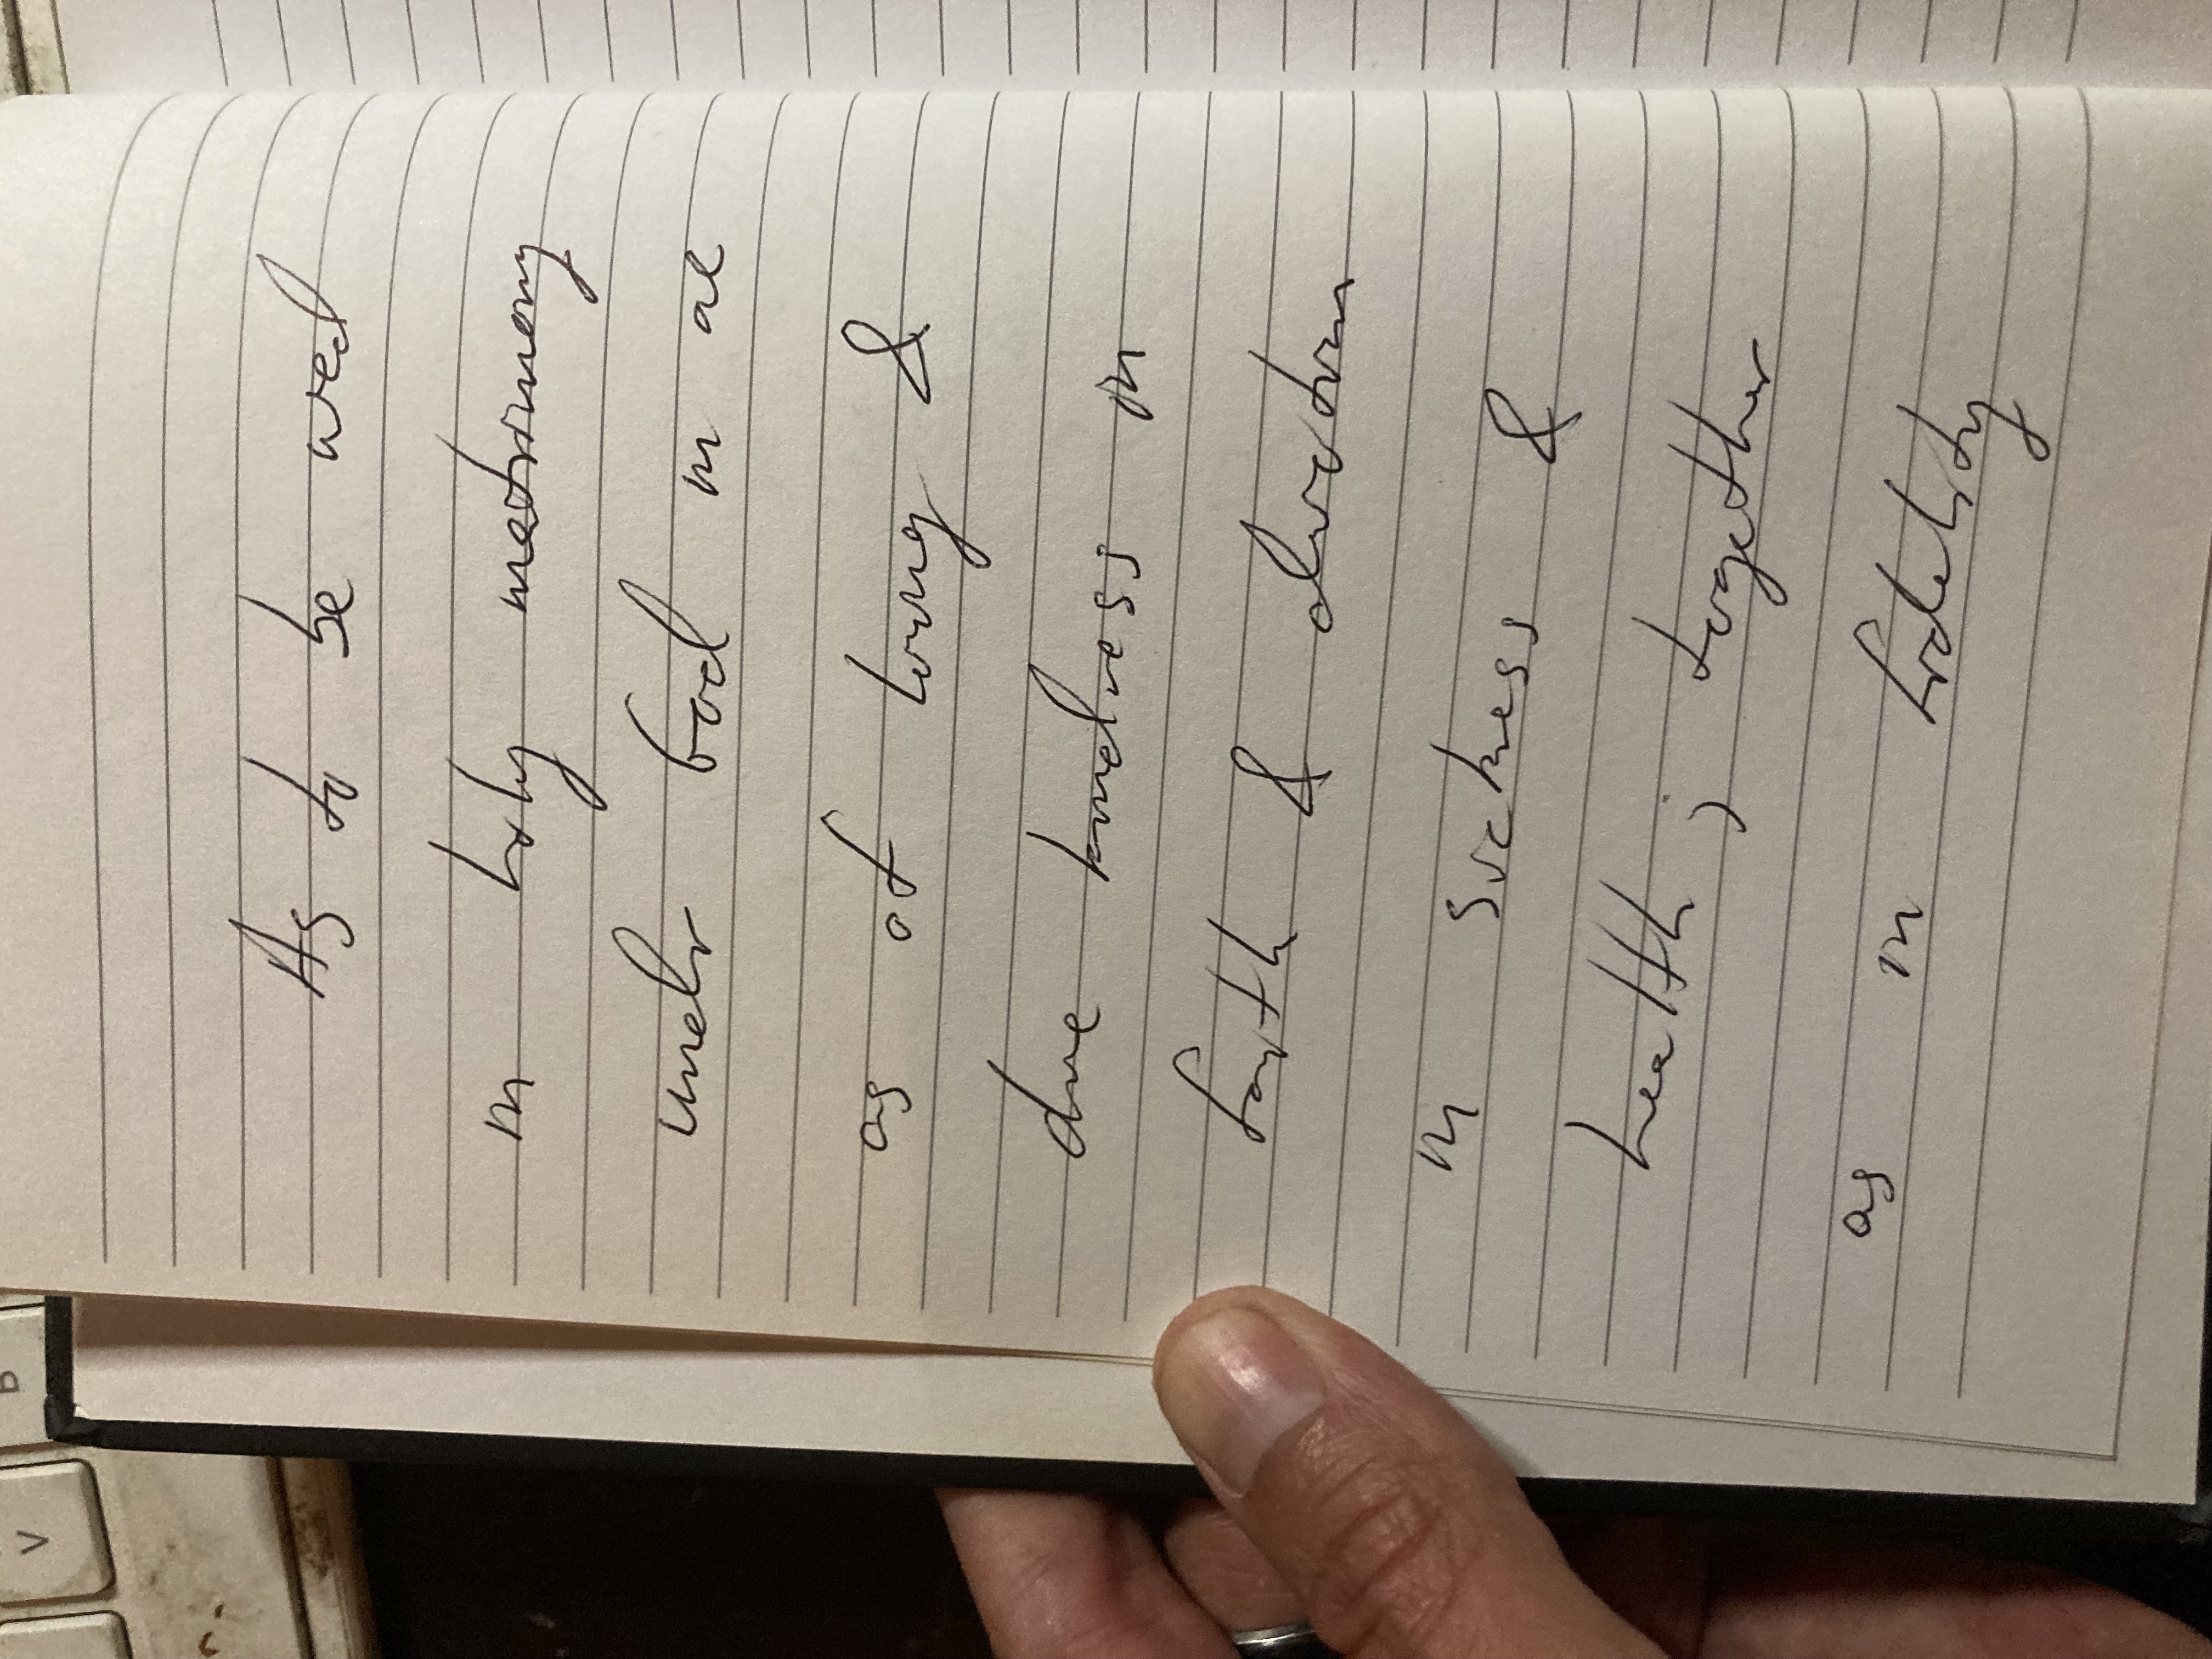 As to be wed
in holy matrimony
under God in all
as of loving &
due kindness in
faith & devotion
in sickness &
health ; together
as in fidelity
B
V